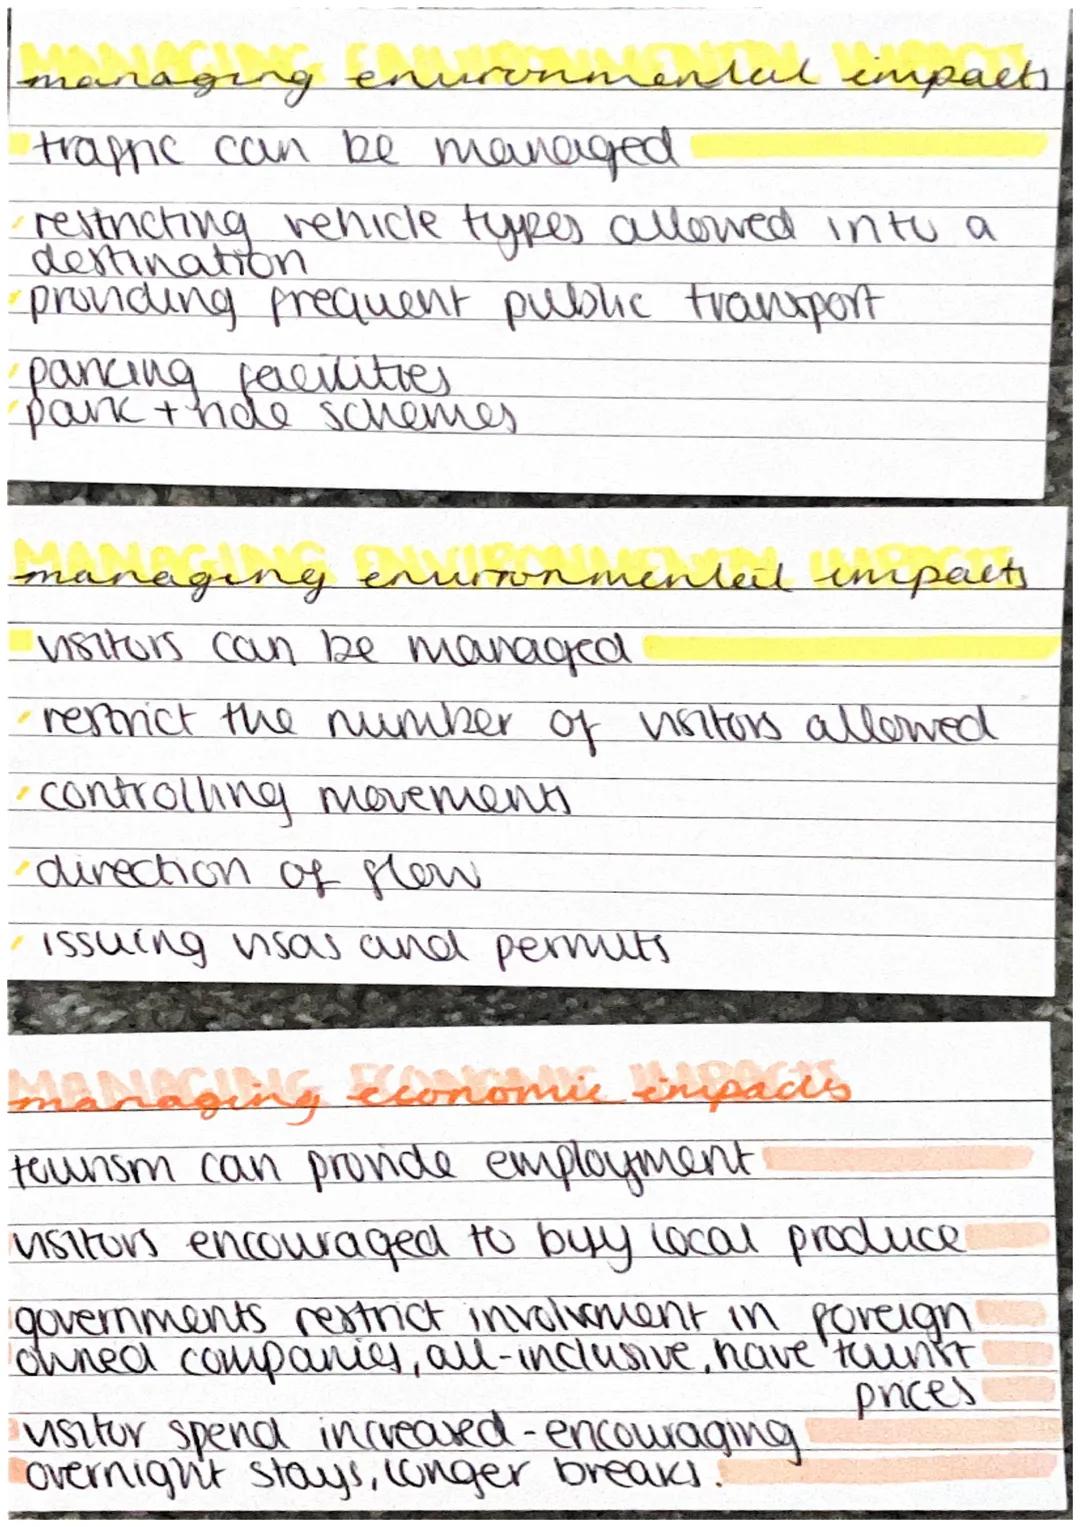 managing environmental impacts
traffic can be managed
restricting vehicle types allowed into a
destination
providing frequent public transport
parking facilities
park + ride schemes
managing environmental impacts
visitors can be managed
restrict the number of visitors allowed
controlling movements
direction of flow
issuing visas and permits
managing economic impacts
tourism can provide employment
visitors encouraged to buy local produce
governments restrict involvment in foreign
owned companies, all-inclusive, have 'tourist
prices
visitor spend increased - encouraging
overnight stays, longer breaks.